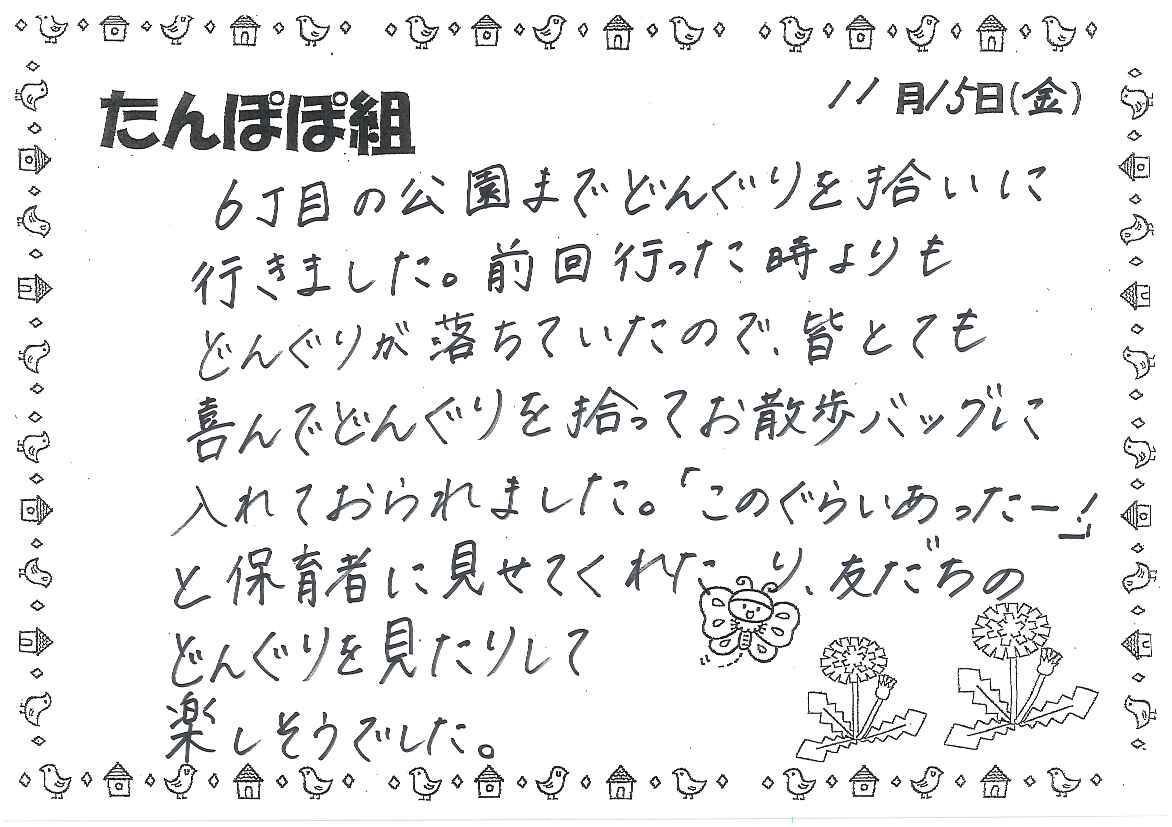 たんぽぽ組
11月15日(金)
6丁目の公園までどんぐりを拾いに
行きました。前回行った時よりも
どんぐりが落ちていたので、皆とても
喜んでどんぐりを拾ってお散歩バッグに
入れておられました。「このぐらいあったー!」
と保育者に見せてくれたり、友だちの
どんぐりを見たりして
楽しそうでした。